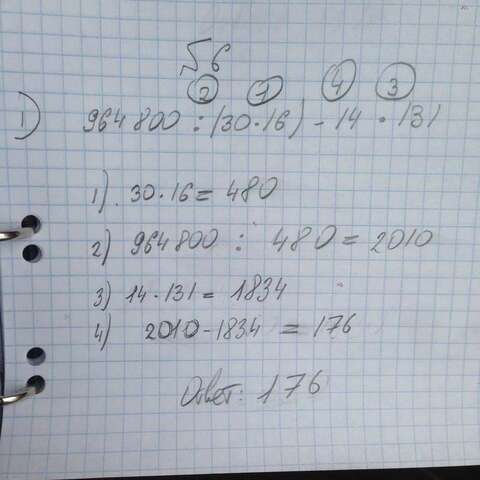 №6
② ① ④ ③
1) 964800 : (30·16) - 14 · 131
1). 30·16 = 480
2) 964800 : 480 = 2010
3) 14·131 = 1834
4) 2010 - 1834 = 176
Ответ: 176